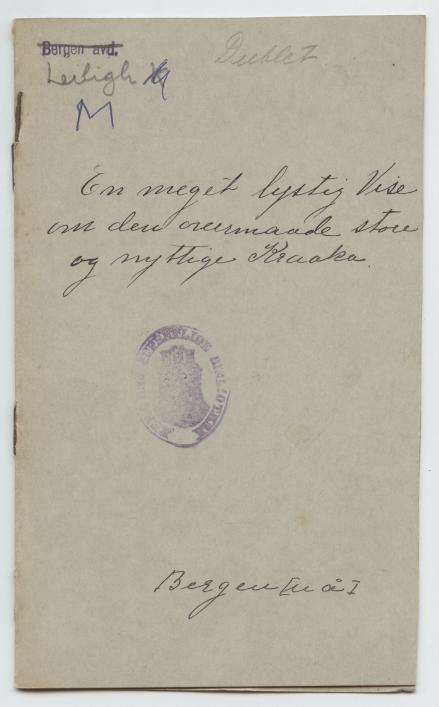 Bergen avd.
Dublet
Leiligh
M
En meget lystig Vise
om den overmaade store
og nyttige Kraaka.
OFFENTLIGE BIBLIOTHEK
Bergen [u å]